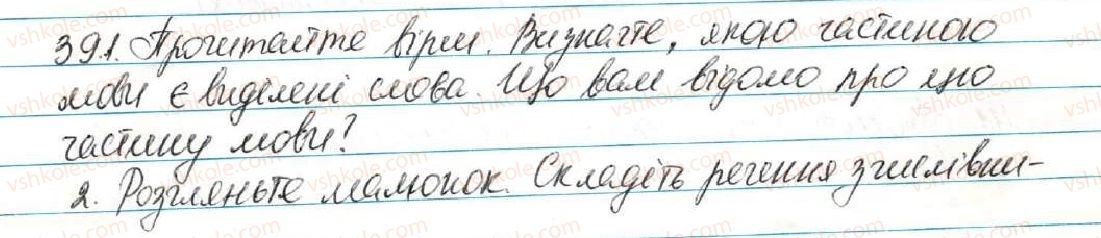 391. Прочитайте вірш. Визначте, якою частиною
мови є виділені слова. Що вам відомо про цю
частину мови?
2. Розгляньте малюнок. Складіть речення з числівни-